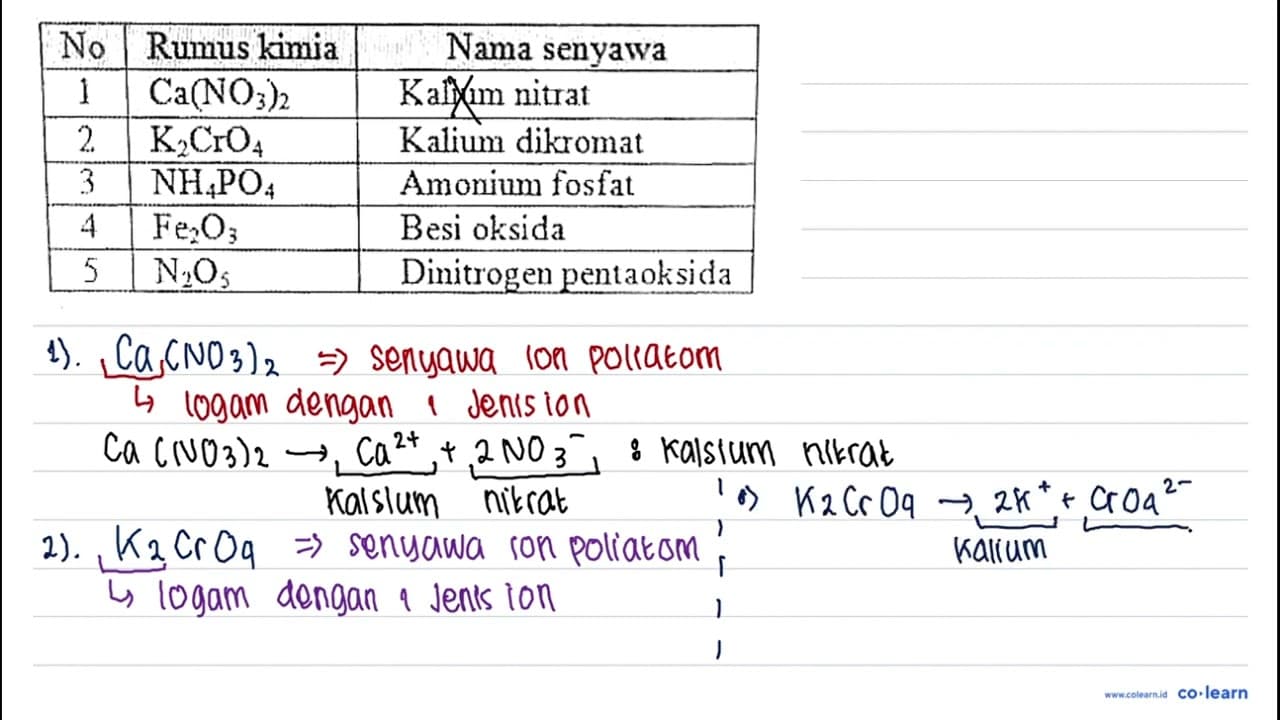 No Rumus kimia Nama senyawa
1 Ca(NO₃)₂ Kalium nitrat
2 K₂CrO₄ Kalium dikromat
3 NH₄PO₄ Amonium fosfat
4 Fe₂O₃ Besi oksida
5 N₂O₅ Dinitrogen pentaoksida
1). Ca(NO3)2 ⇒ senyawa ion poliatom
↳ logam dengan 1 Jenis ion
Ca(NO3)2 → Ca²⁺ + 2NO3⁻ : Kalsium nitrat
Kalsium nitrat
•) K2CrO4 → 2K⁺ + CrO4²⁻
Kalium
2). K2CrO4 ⇒ senyawa ion poliatom
↳ logam dengan 1 Jenis ion
www.colearn.id co·learn